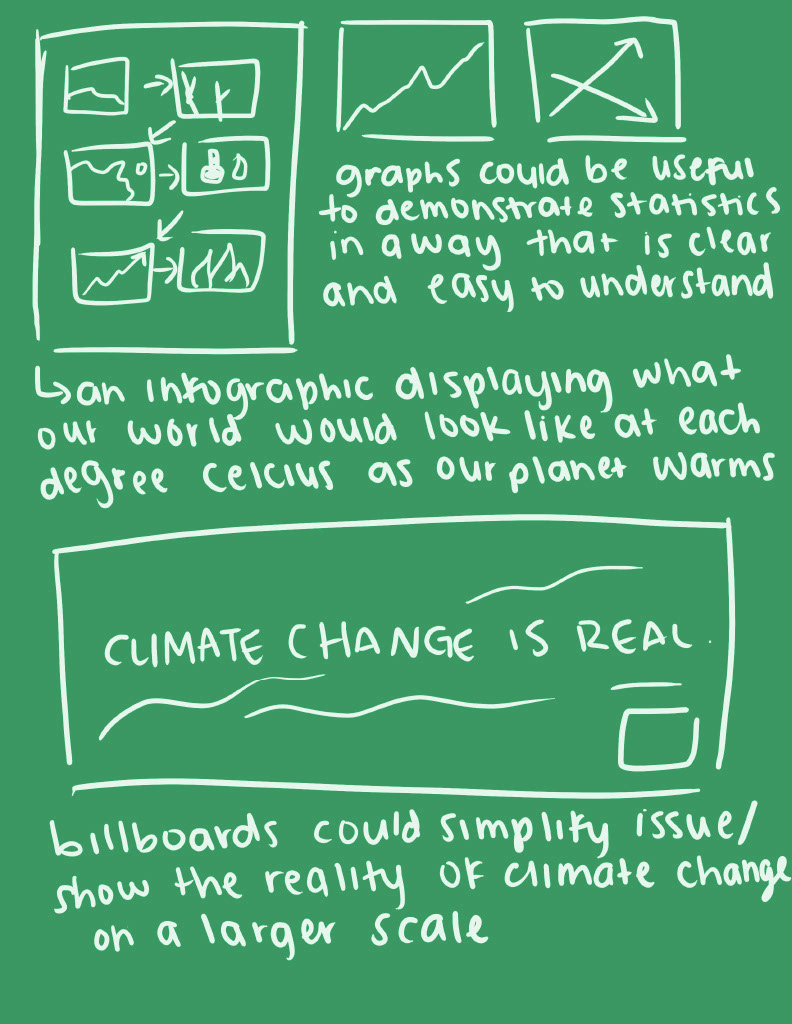 graphs could be useful
to demonstrate statistics
in a way that is clear
and easy to understand
an infographic displaying what
our world would look like at each
degree celcius as our planet warms
CLIMATE CHANGE IS REAL.
billboards could simplify issue/
show the reality of climate change
on a larger scale